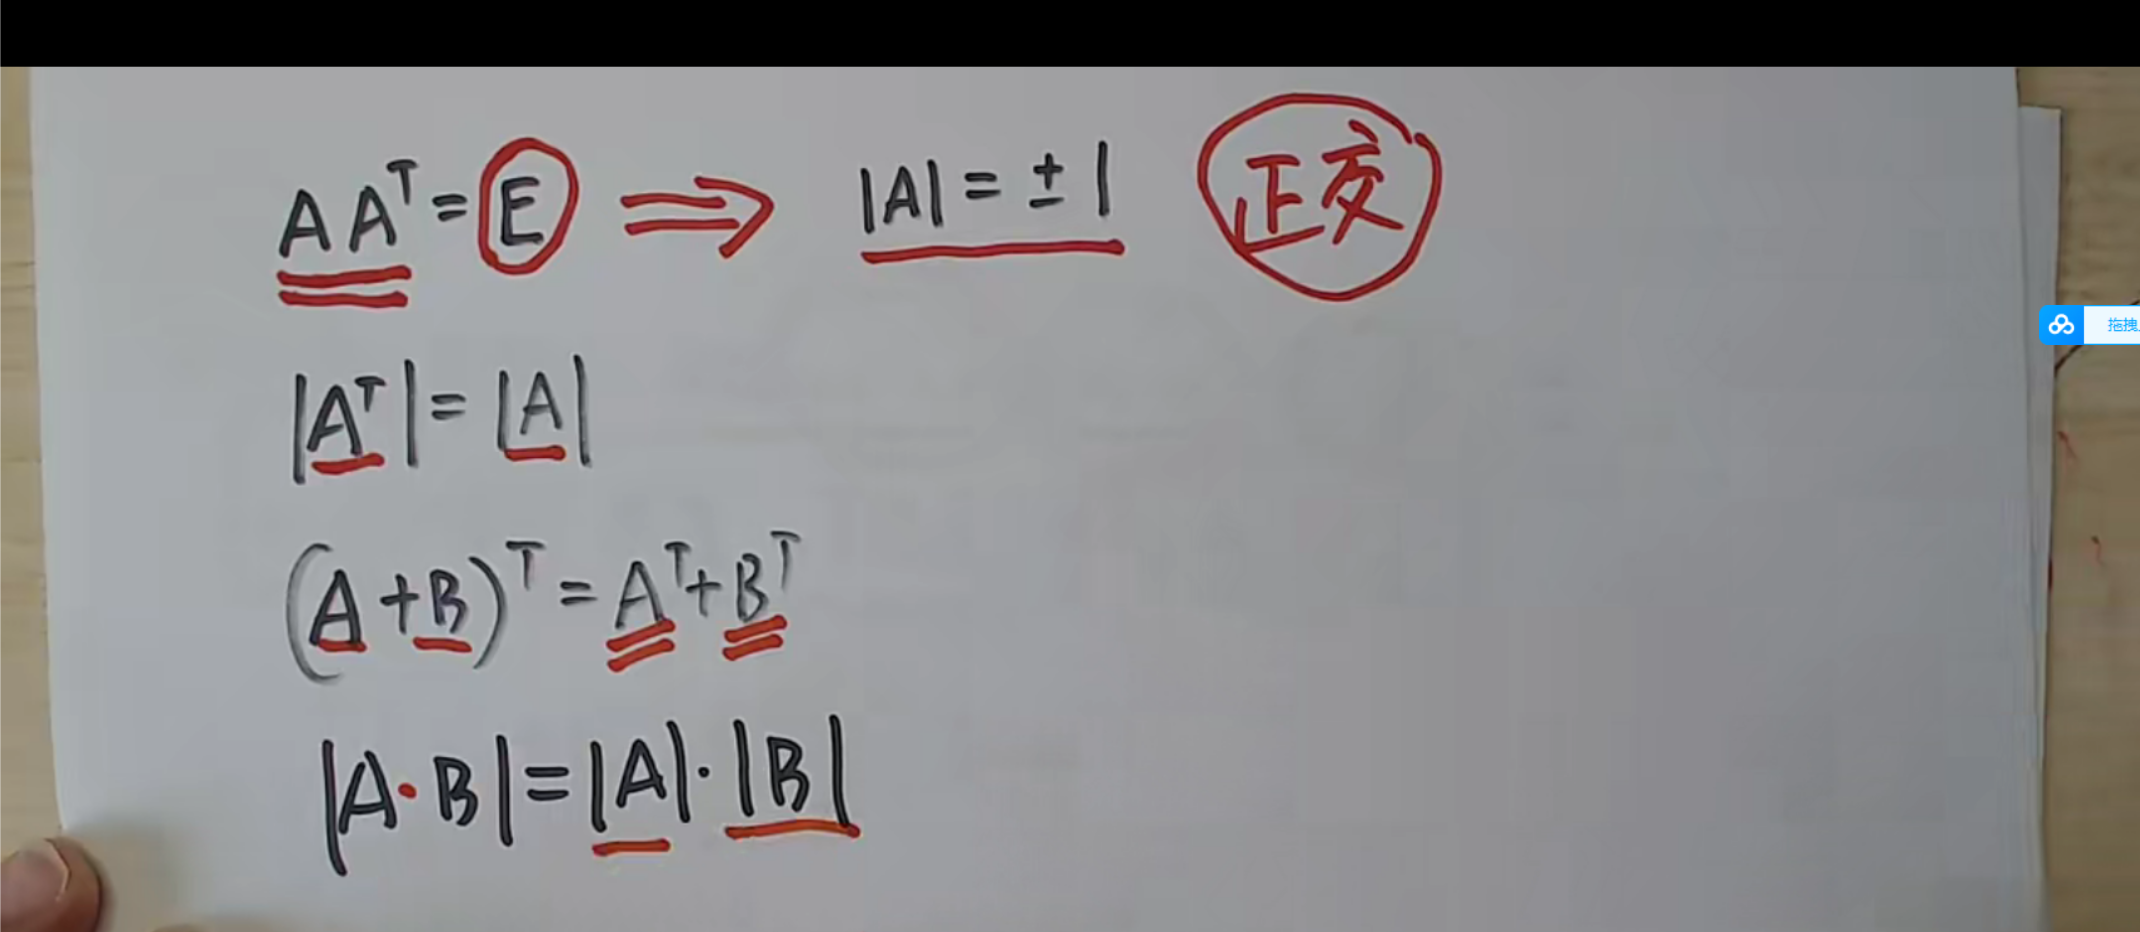 AAᵀ = E ⇒ |A| = ±1 正交
|Aᵀ| = |A|
拖拽
(A+B)ᵀ = Aᵀ+Bᵀ
|A·B| = |A|·|B|